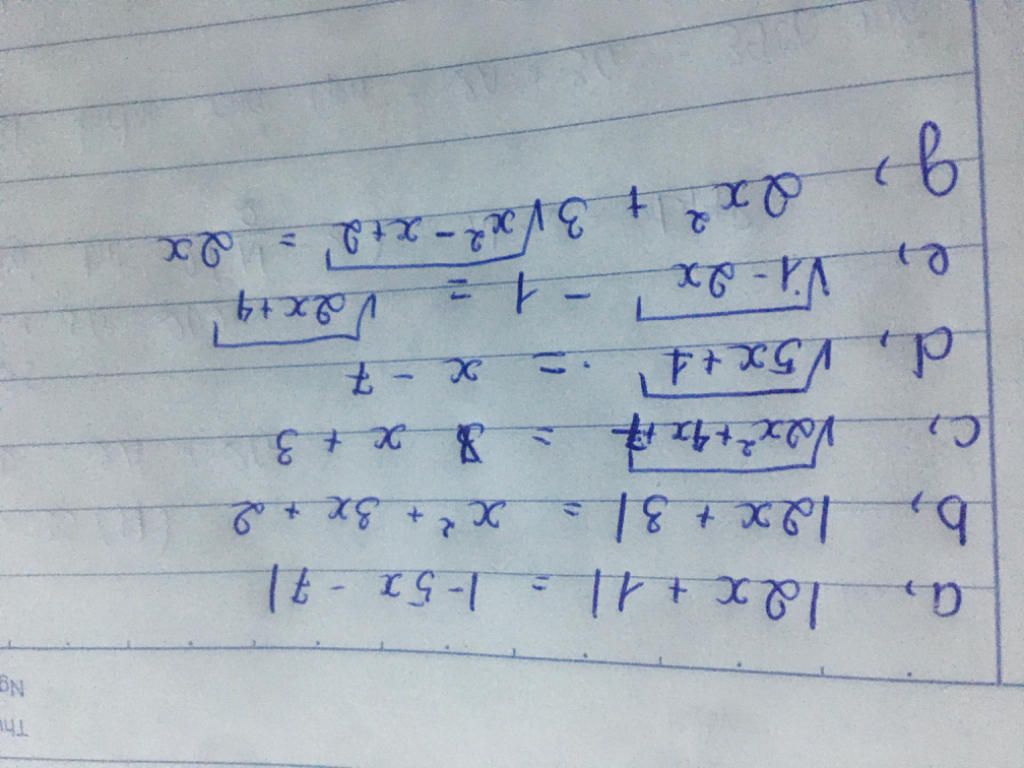 Thứ
Ng
a, |2x + 1| = |-5x - 7|
b, |2x + 3| = x² + 3x + 2
c, √2x²+4x+7 = x + 3
d, √5x+1 = x - 7
e, √1-2x - 1 = √2x+4
g, 2x² + 3√x²-x+2 = 2x